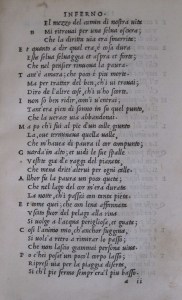 INFERNO
N el mezzo del camin di nostra vita
Mi ritrovai per una selva oscura
Che la diritta via era smarrita:
E t quanto a dir qual era, è cosa dura
Esta selva selvaggia et aspra et forte
Che nel pensier rinuova la paura
T ant'è amara; che poco è più morte.
Ma per trattar del ben, ch'i vi trovai;
Dirò de l'altre cose, ch'i v'ho scorte.
I non so ben ridir, com'i v'entrai;
Tant'era pien di sonno in su quel punto,
Che la verace via abbandonai.
M a po ch'i fui al piè d'un colle giunto
La, ove terminava quella valle,
Che m'havea di paura il cor compunto;
G uarda'in alto; et vidi le sue spalle
Vestite gia de raggi del pianeta,
Che mena dritt'altrui per ogni calle.
A llhor fu la paura un poco queta;
Che nel lago del cor m'era durata
La notte, ch'i passai con tanta pieta.
E t come quei, che con affannata
Uscito fuor del pelago alla riva
Si volge a l'acqua perigliosa, et guata;
C osi l'animo mio, ch'anchor fuggiva,
Si vols'a retro a rimirar lo passo;
Che non lascio giamai persona viva.
P
Ripresi via per la piaggia diserta,
Si ch'l piè fermo sempr'era'l piu basso.
a ii